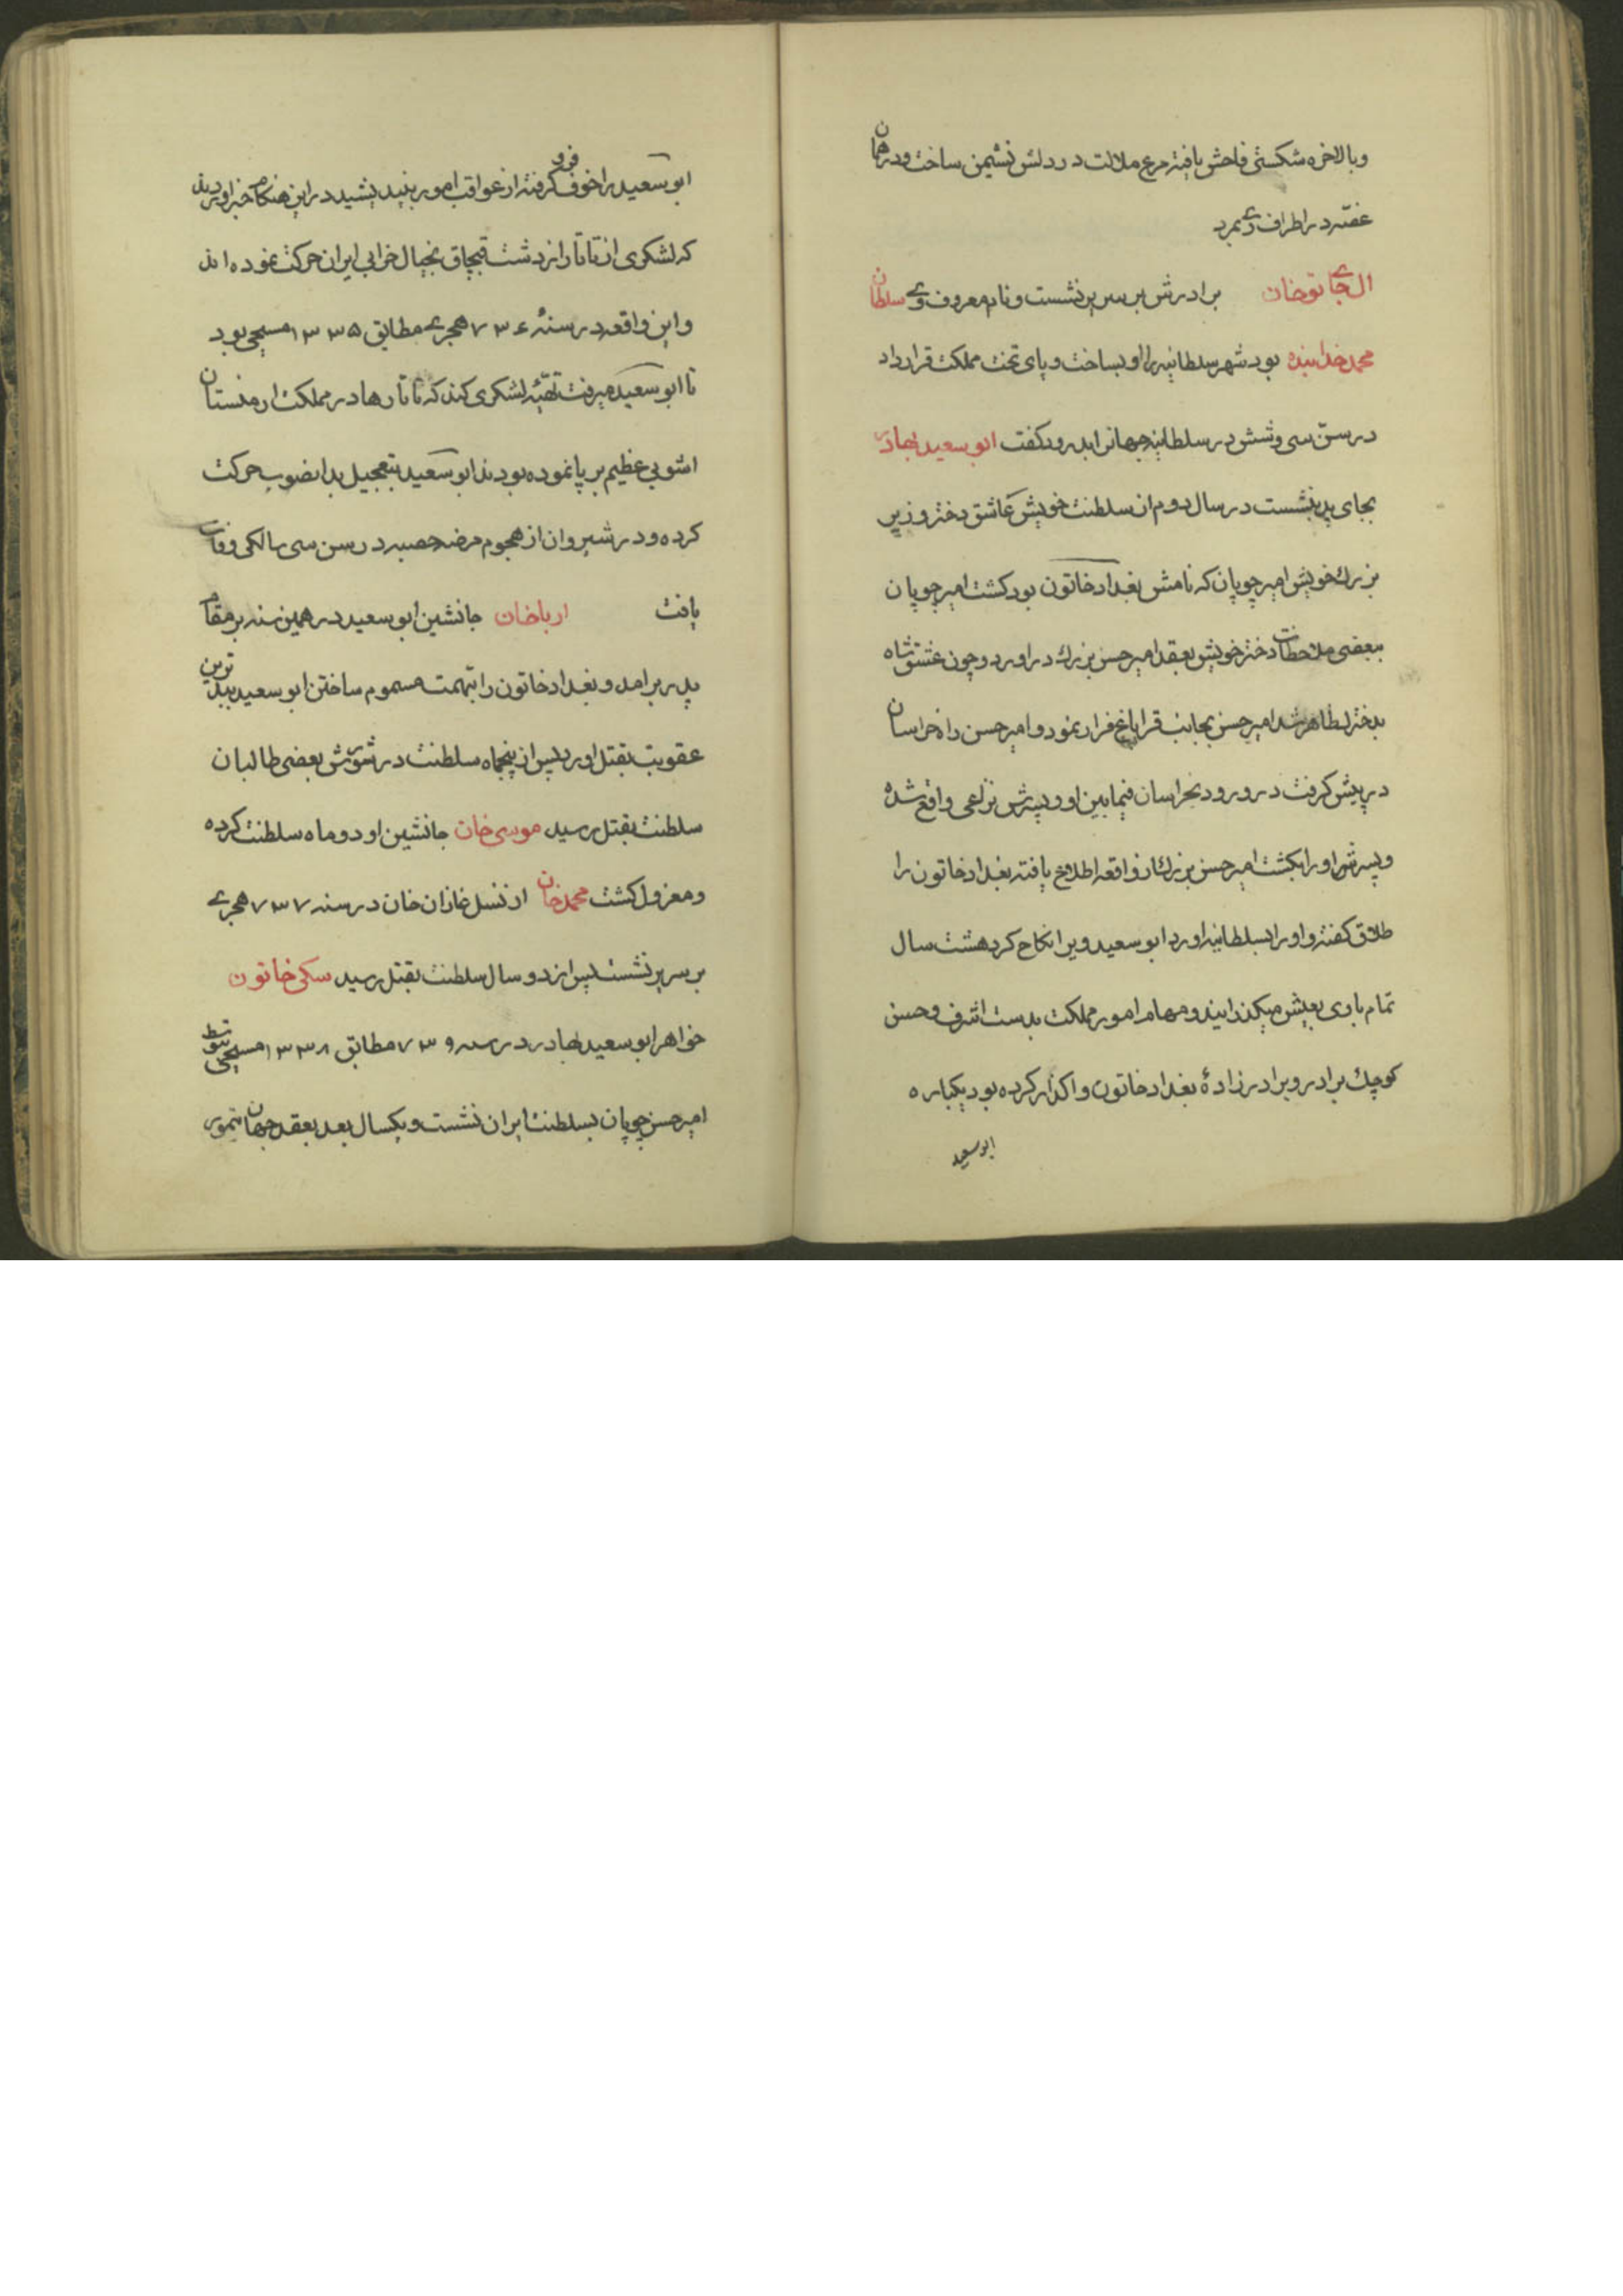 وبالاخره شکستی فاحش یافته مرغ ملالت در دلش نشیمن ساخت و در همان
غصّه در اطراف ری بمرد
الجایتوخان برادرش بر سریر نشست و نام معروف وی سلطان
محمد خدابنده بود شهر سلطانیه را او بساخت و پای تخت مملکت قرار داد
در سنّ سی و شش در سلطانیه جهانرا بدرود گفت ابو سعید بهادر
بجای پدر بنشست در سال دوم از سلطنت خویش عاشق دختر وزیر
بزرک خویش امیر چوپان که نامش بغداد خاتون بود کشت امیر چوپان
ببعضی ملاحظات دختر خویش بعقد امیر حسن بزرک در اورد و چون عشق شاه
بدختر ظاهر شد امیر حسن بجانب قراباغ فرار نمود و امیر حسن راه خراسان
در پیش کرفت در ورود بخراسان فیمابین او و پسرش نزاعی واقع شده
و پسرش او را بکشت امیر حسن بزرک از واقعه اطلاع یافته بغداد خاتون را
طلاق کفته و او را بسلطانیه اورد ابو سعید ویرا نکاح کرد هشت سال
تمام با وی بعیش میکذرانید و مهام امور مملکت بدست اشرف و حسن
کوچک برادر و برادرزادهٔ بغداد خاتون واکذار کرده بود یکباره
ابو سعید
ابو سعید را خوف فرو کرفته از عواقب امور بیندیشید در این هنکام خبر اوردند
که لشکری از تاتار از دشت قبچاق بخیال خرابی ایران حرکت نموده اند
و این واقعه در سنهٔ ۷۳۶ هجری مطابق ۱۳۳۵ مسیحی بود
تا ابو سعید میرفت تهیّه لشکری کند که تاتارها در مملکت ارمنستان
اشوبی عظیم بر پا نموده بودند ابو سعید بتعجیل بدانصوب حرکت
کرده و در شیروان از هجوم مرض حصبه در سن سی سالکی وفات
یافت ارپاخان جانشین ابو سعید در همین سنه بر مقام
پدر برامد و بغداد خاتون را بتهمت مسموم ساختن ابو سعید ببدترین
عقوبت بقتل اورد پس از پنجماه سلطنت در شورش بعضی طالبان
سلطنت بقتل رسید موسی خان جانشین او دو ماه سلطنت کرده
و معزول کشت محمد خان از نسل غازان خان در سنه ۷۳۷ هجری
بر سریر نشست پس از دو سال سلطنت بقتل رسید سکی خاتون
خواهر ابو سعید بهادر در سنه ۷۳۹ مطابق ۱۳۳۸ مسیحی بتوسط
امیر حسن چوپان بسلطنت ایران نشست و یکسال بعد بعقد جهان تیمور